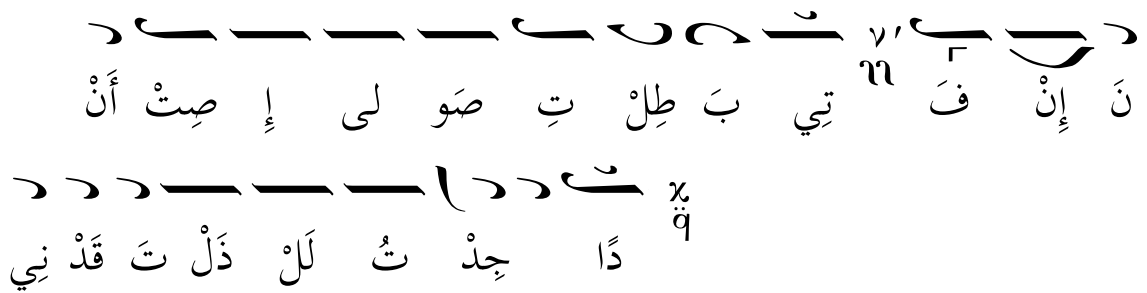 أَنْ صِتْ إِ لى صَو تِ طِلْ بَ تِي فَ إِنْ نَ
نِي قَدْ تَ ذَلْ لَلْ تُ جِدْ دًا